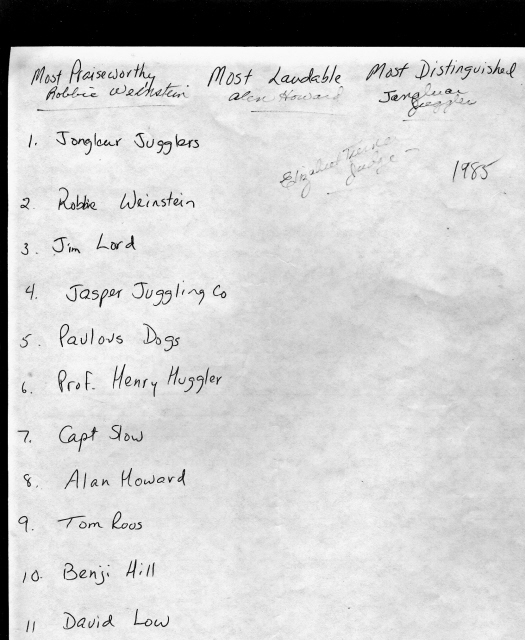 Most Praiseworthy Most Laudable Most Distinguished
Robbie Weinstein Alan Howard Jongleur
Juggler
1. Jongleur Jugglers
Elizabeth
Judge
1985
2. Robbie Weinstein
3. Jim Lord
4. Jasper Juggling Co
5. Paulovs Dogs
6. Prof. Henry Huggler
7. Capt Slow
8. Alan Howard
9. Tom Roos
10. Benji Hill
11 David Low